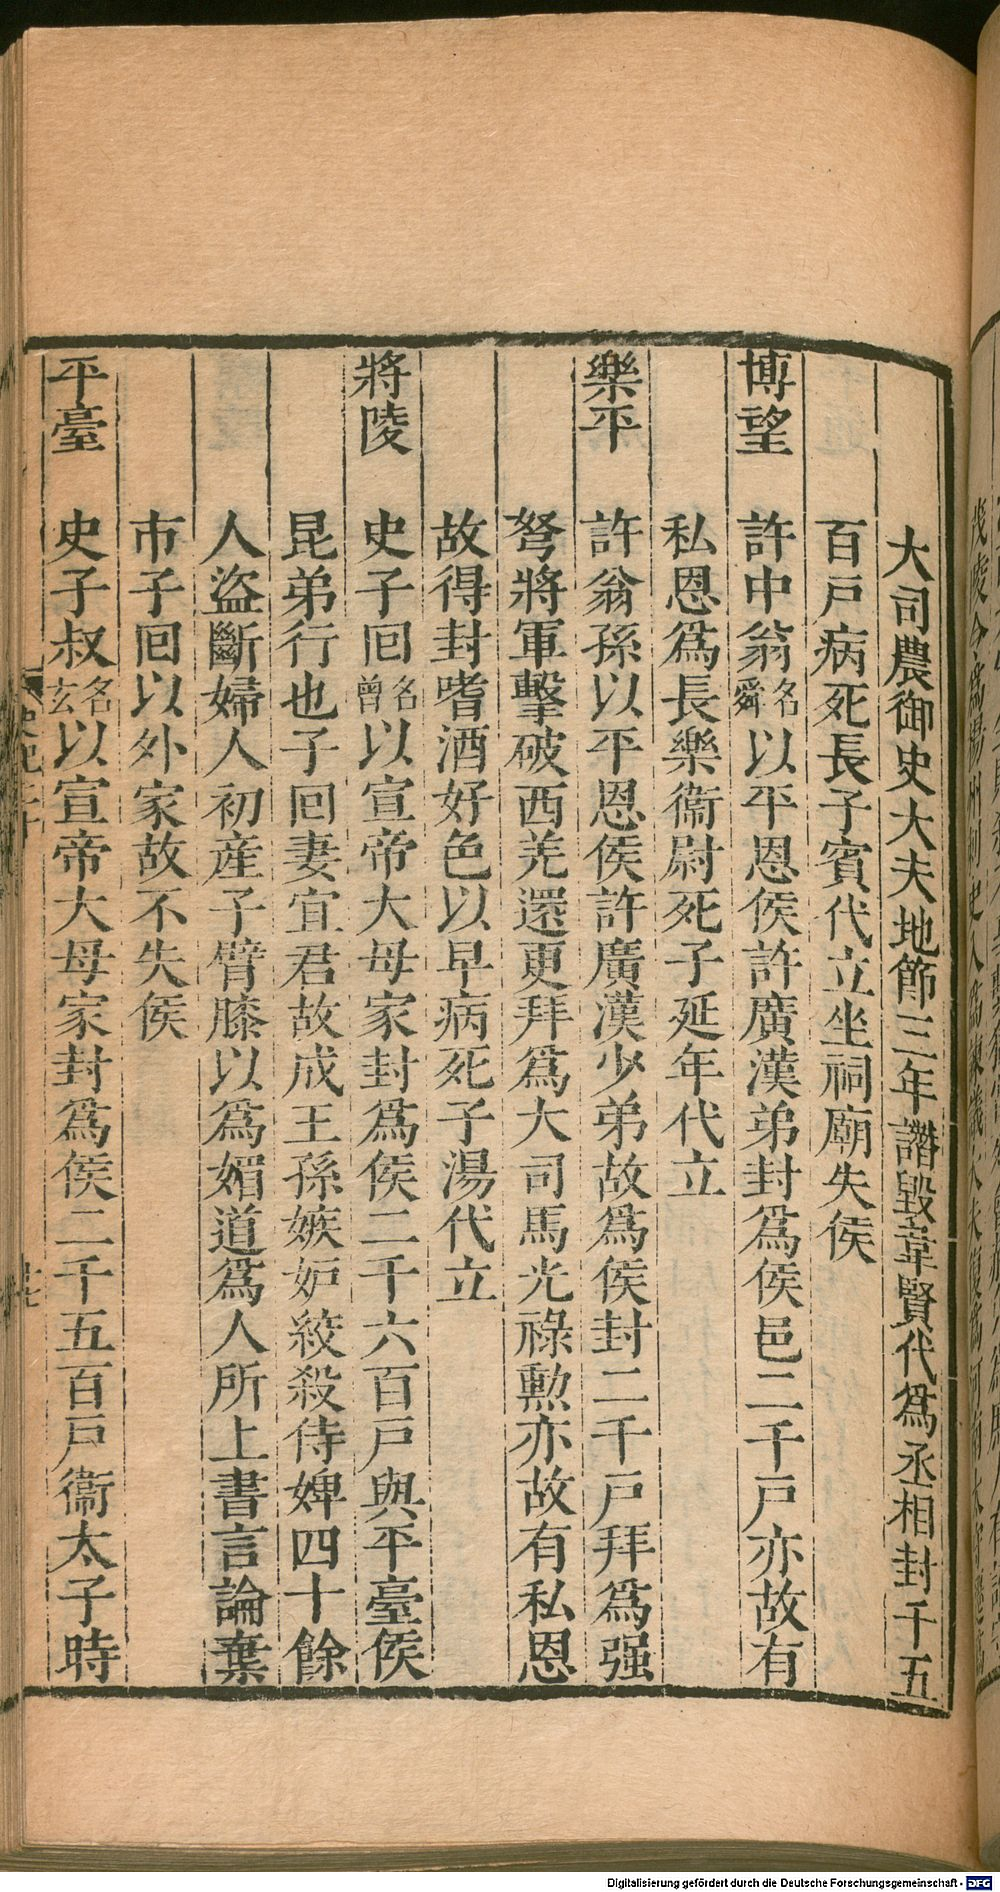 大司農御史大夫地節三年譖毀韋賢代爲丞相封千五
百戸病死長子賓代立坐祠廟失侯
博望 許中翁名舜以平恩侯許廣漢弟封爲侯邑二千戸亦故有
私恩爲長樂衞尉死子延年代立
樂平 許翁孫以平恩侯許廣漢少弟故爲侯封二千戸拜爲强
弩將軍擊破西羌還更拜爲大司馬光祿勲亦故有私恩
故得封嗜酒好色以早病死子湯代立
將陵 史子回名曾以宣帝大母家封爲侯二千六百戸與平臺侯
昆弟行也子回妻宜君故成王孫嫉妒絞殺侍婢四十餘
人盜斷婦人初産子臂膝以爲媚道爲人所上書言論棄
市子回以外家故不失侯
平臺 史子叔名玄以宣帝大母家封爲侯二千五百戸衞太子時
Digitalisierung gefördert durch die Deutsche Forschungsgemeinschaft - DFG